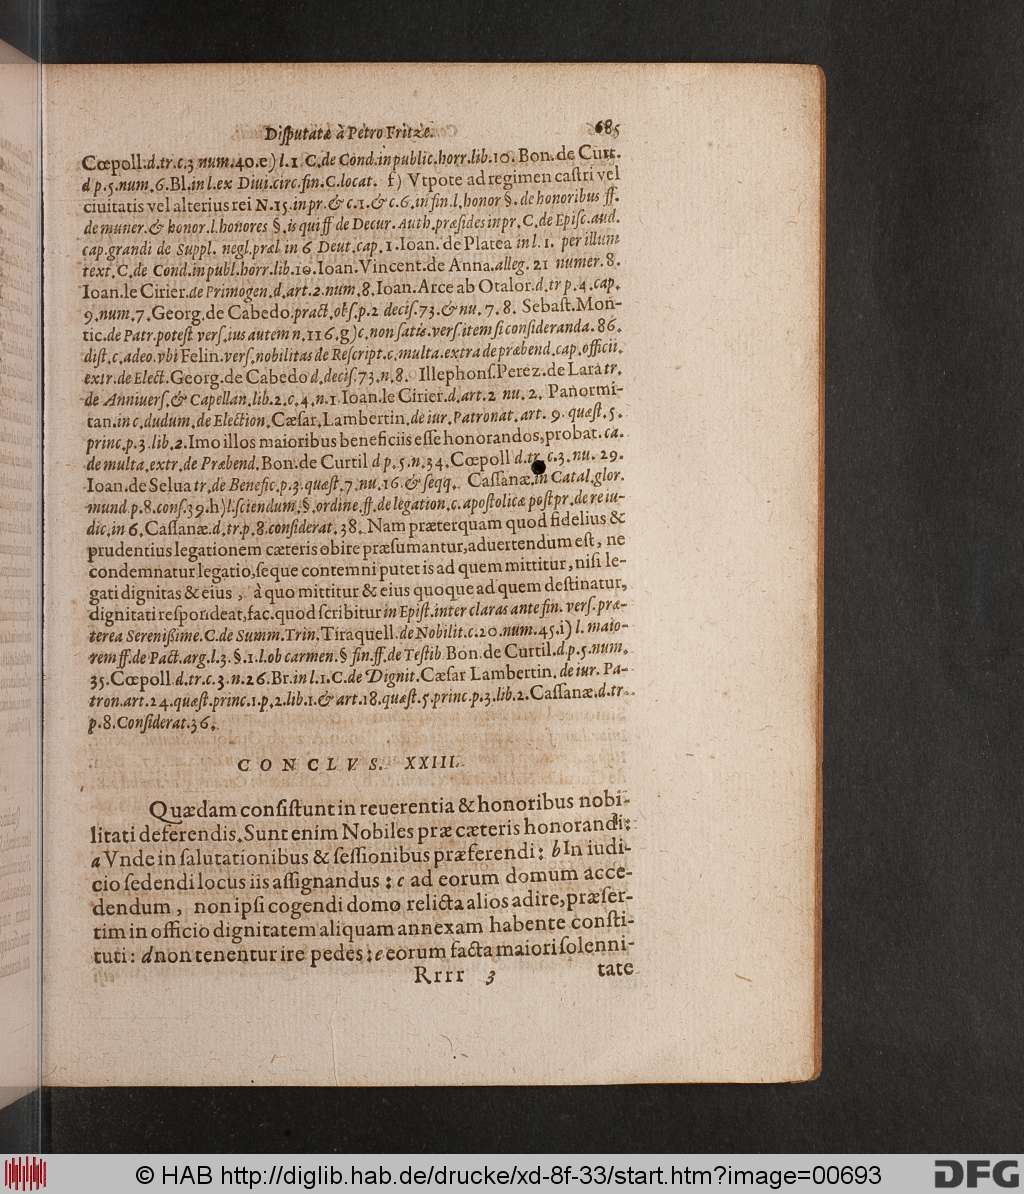 Diſputatæ à Petro Fritze. 685
Cœpoll.d.tr.c.3 num.40.e) l.1 C.de Cond.in public.horr.lib.10. Bon.de Curt.
d p.5.num.6.Bl.in l.ex Diui.circ.fin.C.locat. f) Vtpote ad regimen caſtri vel
ciuitatis vel alterius rei N.15.in pr.& c.1.& c.6.in fin l.honor §.de honoribus ff.
de muner.& honor.l.honores §.is qui ff de Decur. Auth.præſides in pr.C.de Epiſc.aud.
cap.grandi de Suppl. negl.præl in 6 Deut.cap.1.Ioan.de Platea in l.1. per illum
text.C.de Cond.in publ.horr.lib.10.Ioan.Vincent.de Anna.alleg.21 numer.8.
Ioan.le Cirier.de Primogen.d.art.2.num.8.Ioan.Arce ab Otalor.d.tr p.4.cap.
9.num.7.Georg.de Cabedo.pract.obſ.p.2 deciſ.73.& nu.7.8. Sebaſt.Mon-
tic.de Patr.poteſt verſ.ius autem n.116.g)c.non ſatis.verſ.item ſi conſideranda.86.
diſt.c.adeo.vbi Felin.verſ.nobilitas de Reſcript.c.multa.extra de præbend.cap.officii.
extr.de Elect.Georg.de Cabedo d.deciſ.73.n.8. Illephonſ.Perez.de Lara tr.
de Anniuerſ.& Capellan.lib.2.c.4.n.1.Ioan.le Cirier.d.art.2 nu.2. Panormi-
tan.in c.dudum.de Election.Cæſar.Lambertin.de iur.Patronat.art. 9.quæſt.5.
princ.p.3.lib.2.Imo illos maioribus beneficiis eſſe honorandos,probat.ca.
de multa.extr.de Præbend.Bon.de Curtil d p.5.n.34.Cœpoll d.tr.c.3.nu.29.
Ioan.de Selua tr.de Benefic.p.3.quæſt.7.nu.16.& ſeqq. Caſſanæ.in Catal.glor.
mund p.8.conſ.39.h)l.ſciendum.§.ordine.ff.de legation.c.apoſtolicæ poſt pr.de re iu-
dic.in 6.Caſſanæ.d.tr.p.8.conſiderat.38.Nam præterquam quod fidelius &
prudentius legationem cæteris obire præſumantur,aduertendum eſt, ne
condemnatur legatio,ſeque contemni putet is ad quem mittitur, niſi le-
gati dignitas & eius , à quo mittitur & eius quoque ad quem deſtinatur,
dignitati reſpondeat,fac.quod ſcribitur in Epiſt.inter claras ante fin. verſ.præ-
terea Sereniſsime.C.de Summ.Trin.Tiraquell.de Nobilit.c.20.num.45.i) l. maio-
rem ff.de Pact.arg.l.3.§.1.l.ob carmen.§ fin.ff.de Teſtib Bon.de Curtil.d.p.5.num.
35.Cœpoll d.tr.c.3.n.26.Br.in l.1.C.de Dignit.Cæſar Lambertin.de iur. Pa-
tron.art.24.quæſt.princ.1.p.2.lib.1.& art.18.quæſt.5.princ.p.3.lib.2.Caſſanæ.d.tr.
p.8.Conſiderat.36.
CONCLVS. XXIII.
Quædam conſiſtunt in reuerentia & honoribus nobi-
litati deferendis.Sunt enim Nobiles præ cæteris honorandi:
a Vnde in ſalutationibus & ſeſſionibus præferendi: b In iudi-
cio ſedendi locus iis aſſignandus : c ad eorum domum acce-
dendum , non ipſi cogendi domo relicta alios adire,præſer-
tim in officio dignitatem aliquam annexam habente conſti-
tuti: d non tenentur ire pedes : e eorum facta maiori ſolenni-
Rrrr 3 tate
© HAB http://diglib.hab.de/drucke/xd-8f-33/start.htm?image=00693
DFG